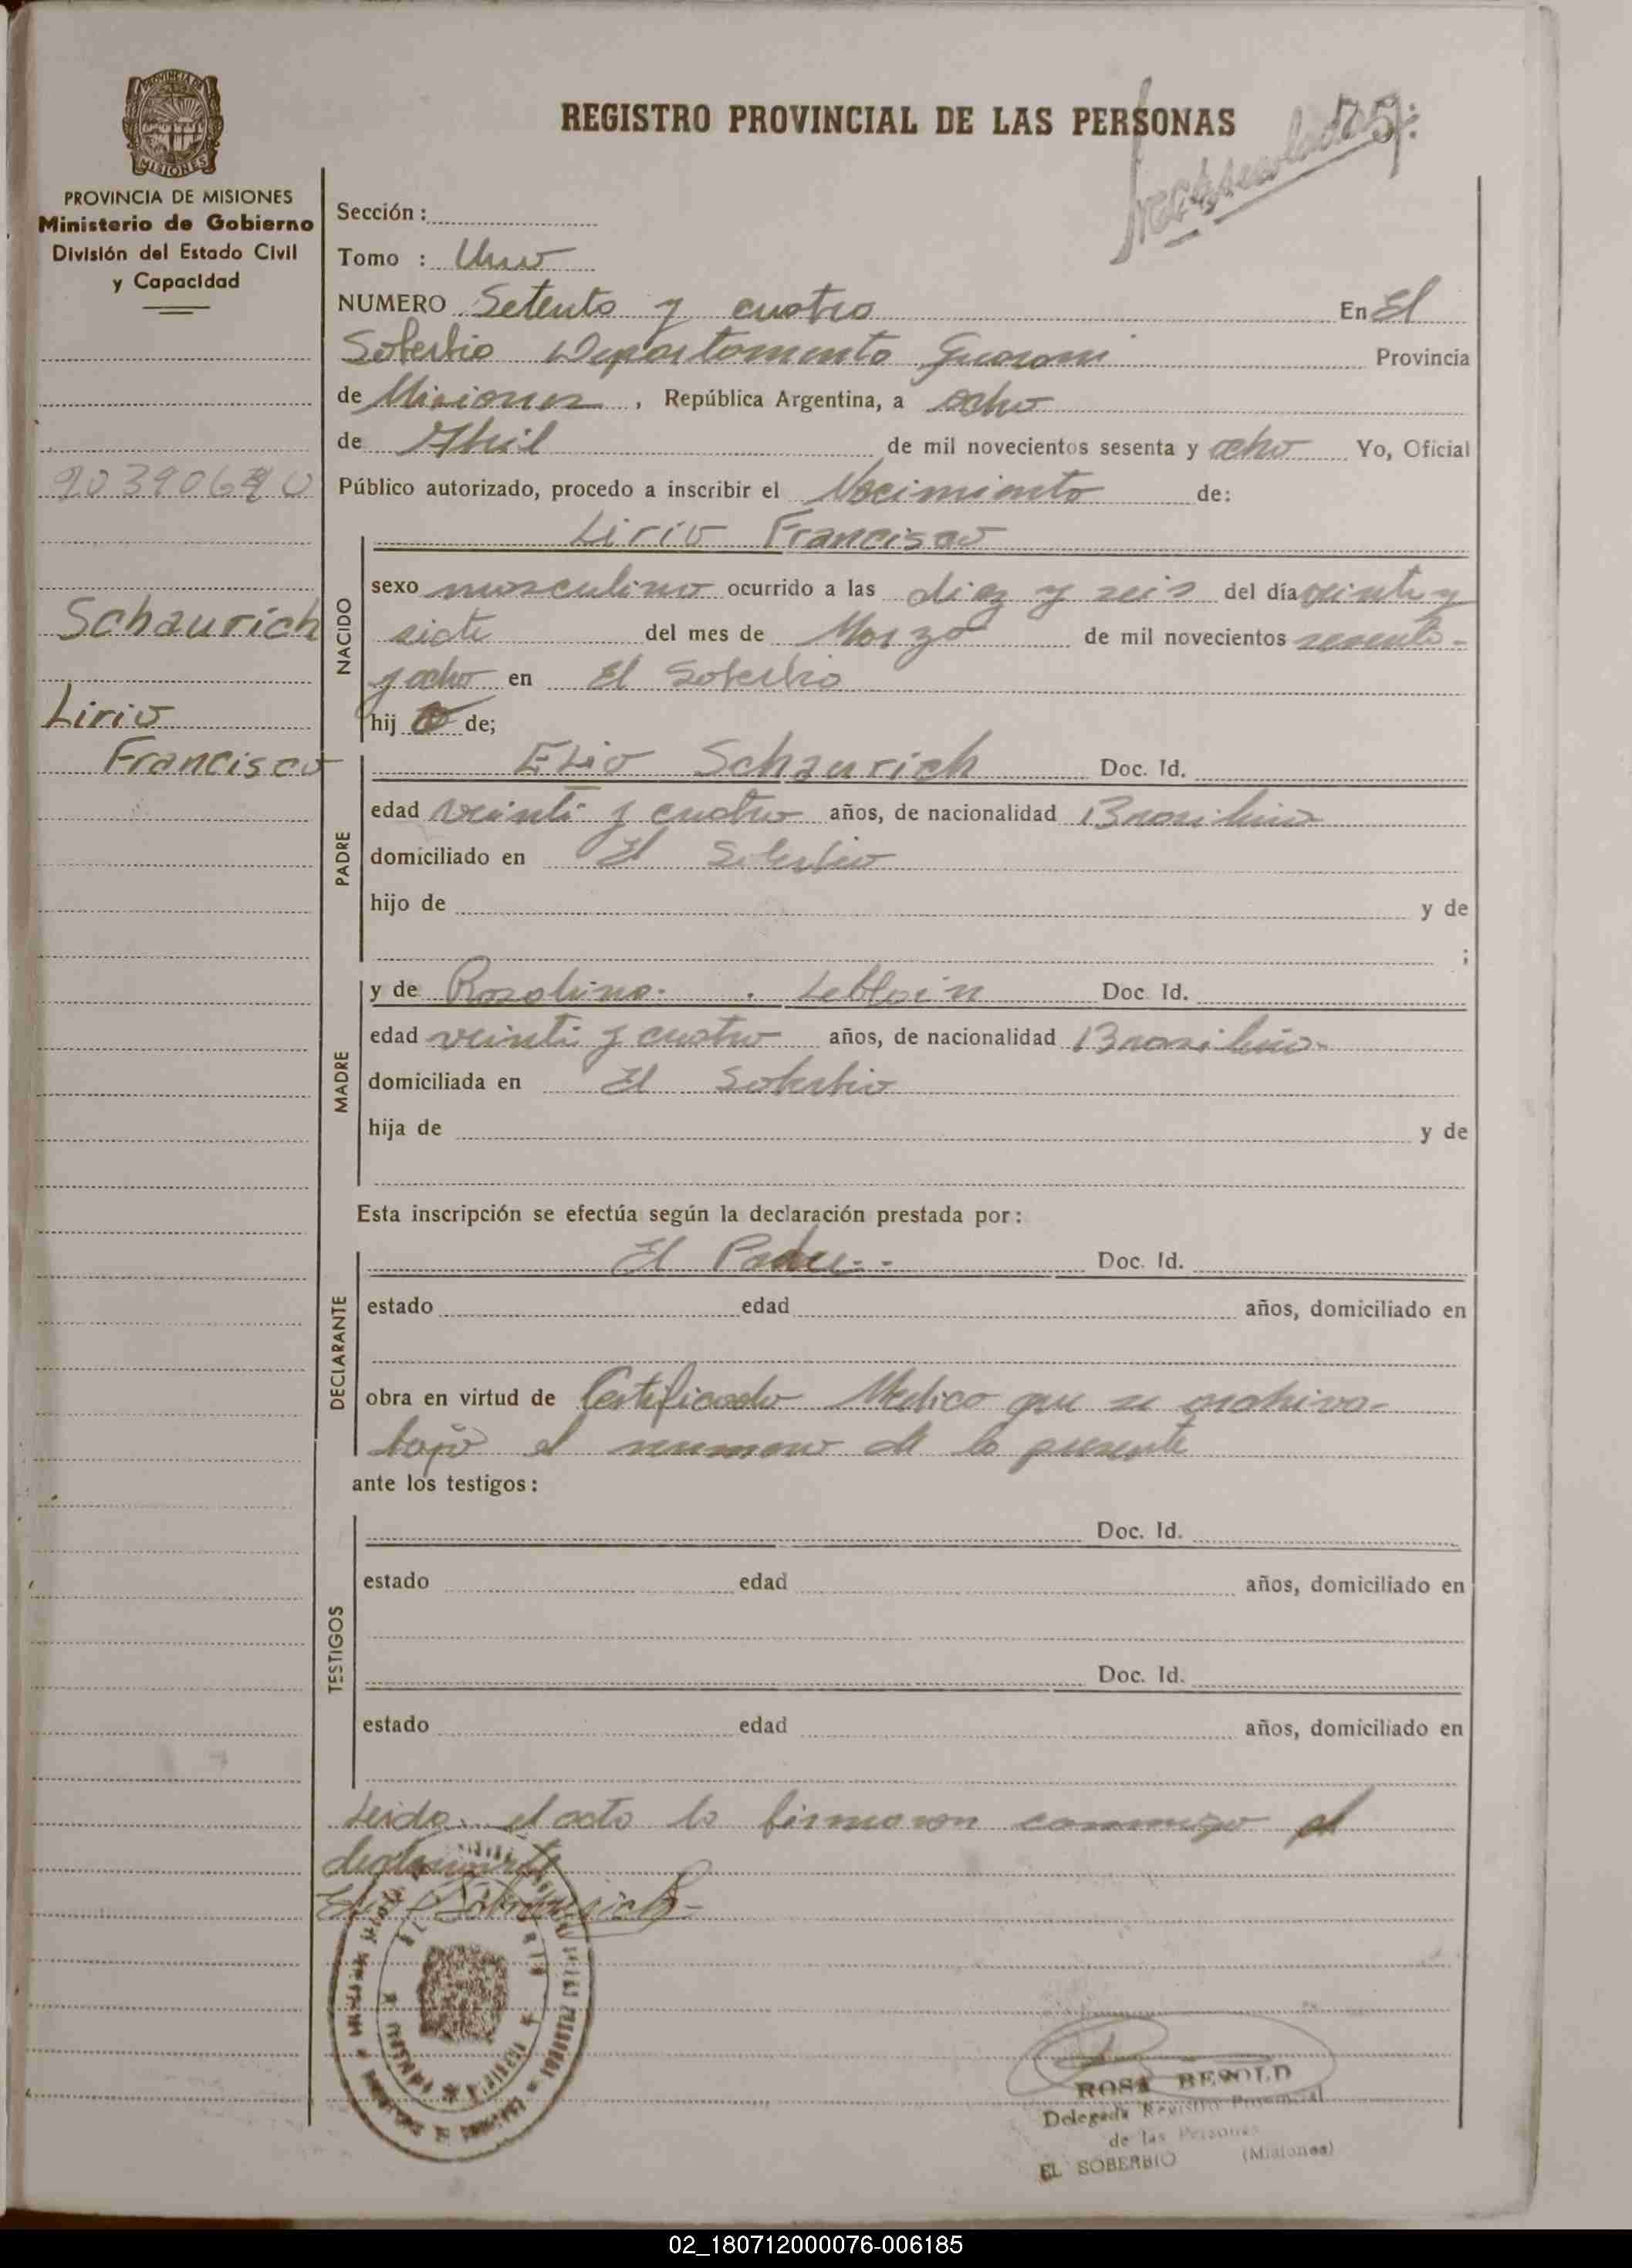 PROVINCIA DE MISIONES
Ministerio de Gobierno
División del Estado Civil
y Capacidad
REGISTRO PROVINCIAL DE LAS PERSONAS
Sección :
Tomo : Uno
NUMERO Setenta y cuatro En El
Soberbio Departamento Guarani Provincia
de Misiones, República Argentina, a ocho
de Abril de mil novecientos sesenta y ocho Yo, Oficial
Público autorizado, procedo a inscribir el Nacimiento de:
Lirio Francisco
NACIDO
sexo masculino ocurrido a las diez y seis del día veinte y
siete del mes de Marzo de mil novecientos sesenta-
y ocho en El Soberbio
hijo de;
Schaurich
Lirio
Francisco
PADRE
Elio Schaurich Doc. Id.
edad veinti y cuatro años, de nacionalidad Brasilera
domiciliado en El Soberbio
hijo de y de
;
MADRE
y de Rosolina. Lebloin Doc. Id.
edad veinti y cuatro años, de nacionalidad Brasilera
domiciliada en El Soberbio
hija de y de
Esta inscripción se efectúa según la declaración prestada por:
DECLARANTE
El Padre.- Doc. Id.
estado edad años, domiciliado en
obra en virtud de Certificado Medico que se archiva-
bajo el numero de la presente
ante los testigos:
TESTIGOS
Doc. Id.
estado edad años, domiciliado en
Doc. Id.
estado edad años, domiciliado en
Leida el acta la firmaron conmigo el
declarante
Elio Schaurich-
ROSA BEWOLD
Delegada Registro Provincial
de las Personas
EL SOBERBIO (Misiones)
02_180712000076-006185